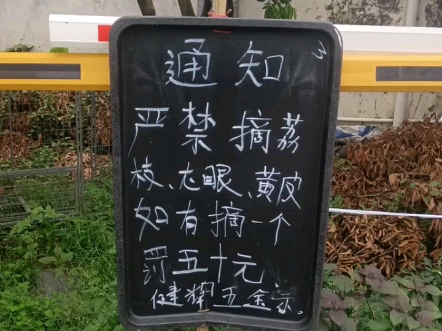 通知
严禁摘荔
枝、龙眼、黄皮
如有摘一个
罚五十元
五金